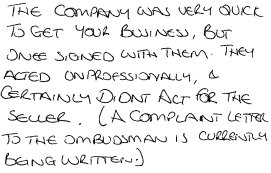 THE COMPANY WAS VERY QUICK
TO GET YOUR BUSINESS, BUT
ONCE SIGNED WITH THEM. THEY
ACTED UNPROFESSIONALLY, &
CERTAINLY DIDNT ACT FOR THE
SELLER. (A COMPLAINT LETTER
TO THE OMBUDSMAN IS CURRENTLY
BEING WRITTEN.)